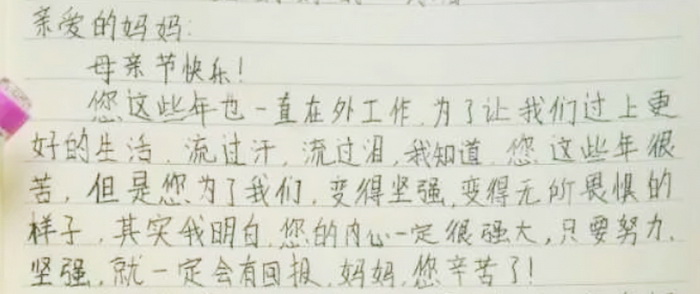 亲爱的妈妈:
母亲节快乐!
您这些年也一直在外工作,为了让我们过上更
好的生活,流过汗,流过泪,我知道,您这些年很
苦,但是您为了我们,变得坚强,变得无所畏惧的
样子,其实我明白,您的内心一定很强大,只要努力、
坚强,就一定会有回报,妈妈,您辛苦了!